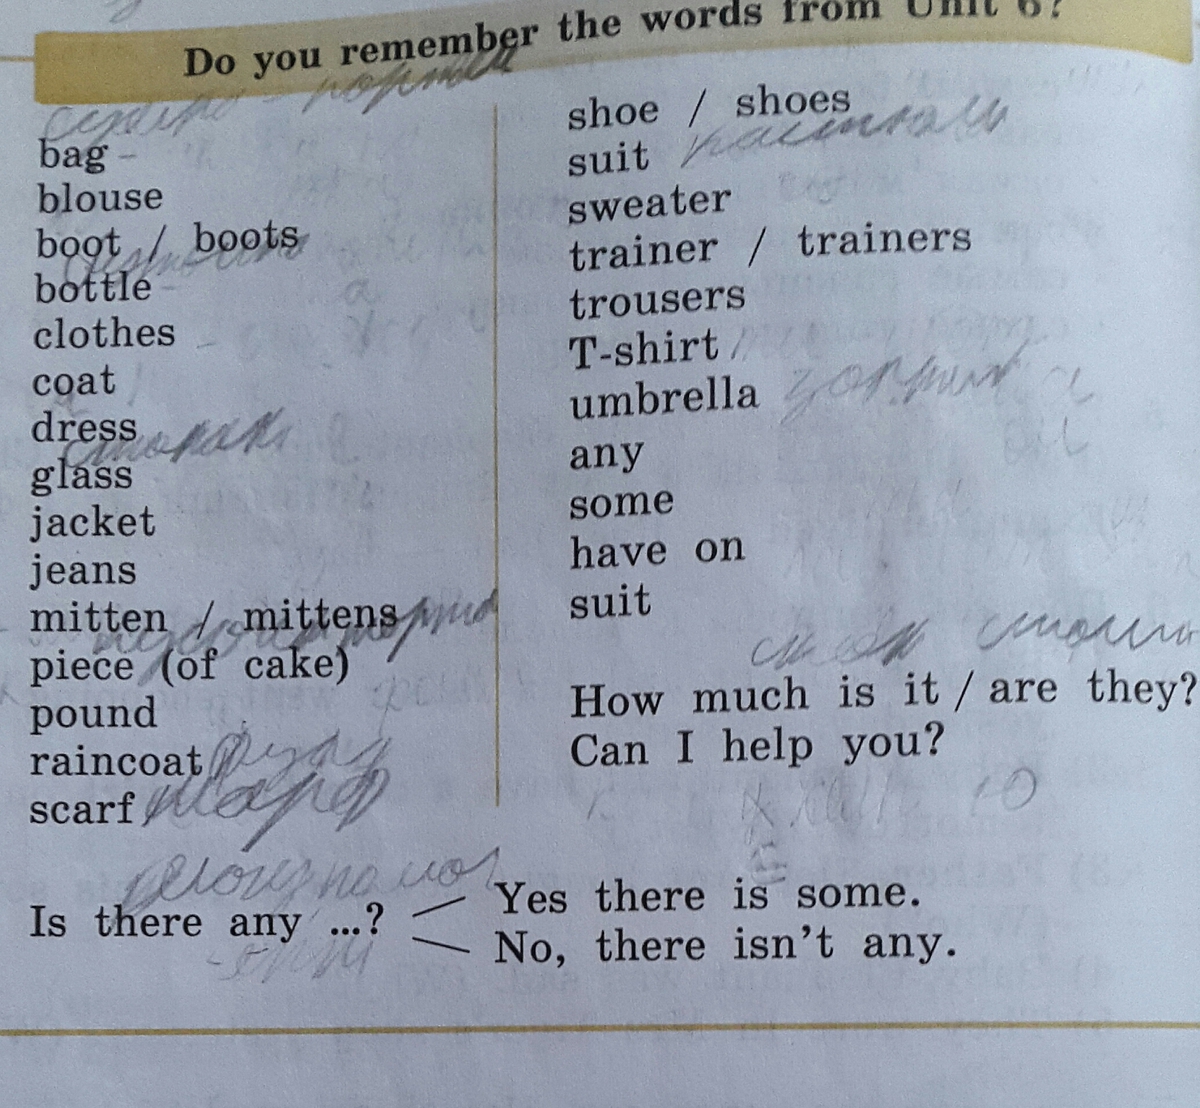 Do you remember the words from Unit 6?
bag -
blouse
boot / boots
bottle -
clothes -
coat
dress
стакан
glass
jacket
jeans
mitten / mittens
piece (of cake)
pound
raincoat
scarf шарф
shoe / shoes
suit
sweater
trainer / trainers
trousers
T-shirt
umbrella зонтик
any
some
have on
suit
How much is it / are they?
Can I help you?
Is there any ...?
Yes there is some.
No, there isn't any.